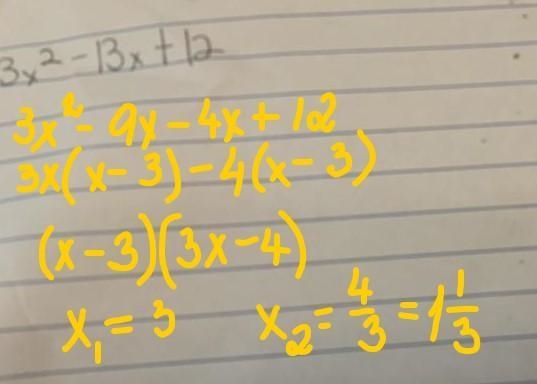 3x² - 13x + 12
3x² - 9x - 4x + 12
3x(x - 3) - 4(x - 3)
(x - 3)(3x - 4)
x₁ = 3 x₂ = 4/3 = 1 1/3